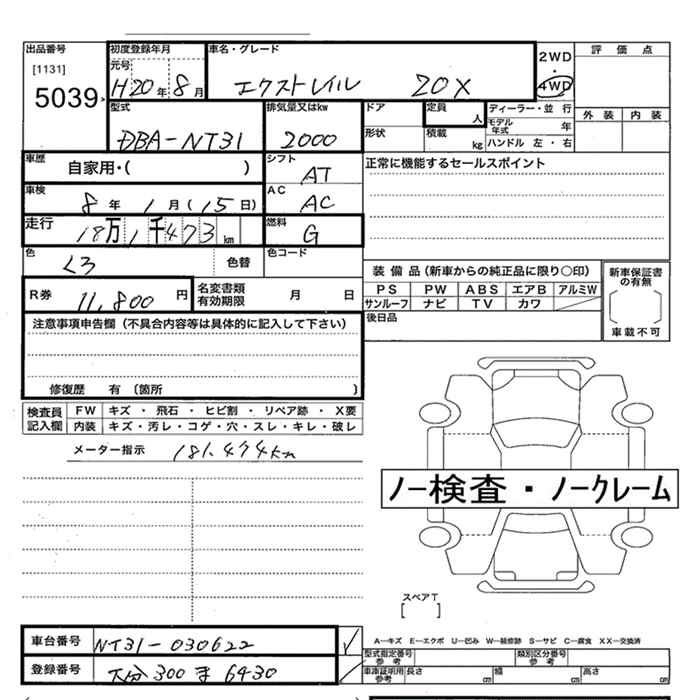 出品番号 初度登録年月 車名・グレード 2WD 評価点
[1131] 元号 ・
5039 H20年8月 エクストレイル 20X 4WD
型式 排気量又はkw ドア 定員 人 ディーラー・並行 外装 内装
DBA-NT31 2000 形状 積載 kg モデル年式 年
ハンドル 左・右
車歴 自家用・( ) シフト AT 正常に機能するセールスポイント
車検 8年1月(15日) AC AC
走行 18万1千473km 燃料 G
色 クロ 色替 色コード
装備品(新車からの純正品に限り○印) 新車保証書の有無
R券 11,800円 名変書類有効期限 月 日 PS PW ABS エアB アルミW
サンルーフ ナビ TV カワ [ ] 車載不可
注意事項申告欄(不具合内容等は具体的に記入して下さい) 後日品
修復歴 有 (箇所 )
検査員記入欄 FW キズ・飛石・ヒビ割・リペア跡・X要
内装 キズ・汚レ・コゲ・穴・スレ・キレ・破レ
メーター指示 181,474km
ノー検査・ノークレーム
スペアT
[ ]
車台番号 NT31-030622 A-キズ E-エクボ U-凹み W-補修跡 S-サビ C-腐食 XX-交換済
型式指定番号参考 類別区分番号参考
登録番号 大分300ま6430 車庫証明用参考 長さ cm 幅 cm 高さ cm